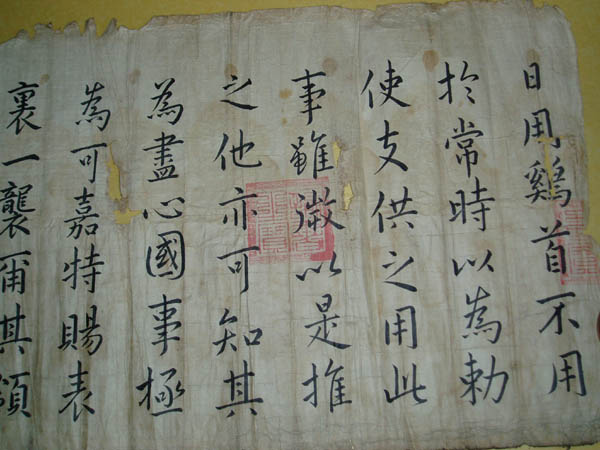 日用鷄首不用
扵常時以為勅
使支供之用此
事雖微以是推
之他亦可知其
為盡心國事極
為可嘉特賜表
裏一襲爾其領